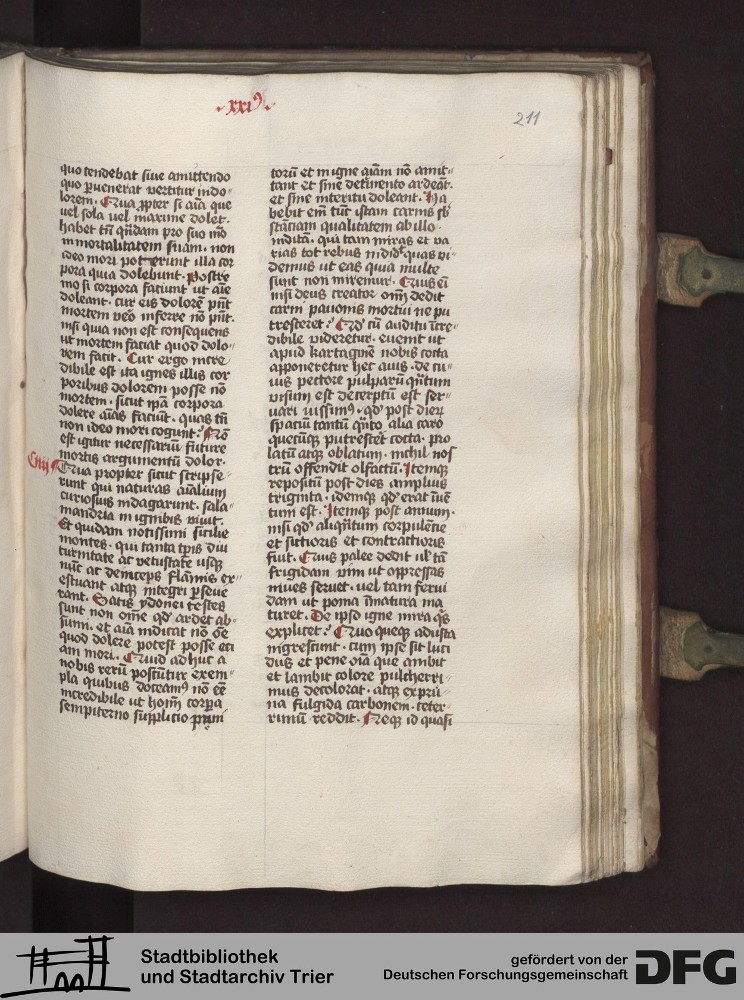 xxi⁹
211
quo tendebat siue amittendo
quo p̄uenerat vertitur in do⸗
lorem. Qua ꝓpter si aīa que
uel sola uel maxime dolet.
habet tn̄ quādam pro suo mō
immortalitatem suam. non
ideo mori poterunt illa cor
pora quia dolebunt. Postre
mo si corpora faciunt ut aīe
doleant. cur eis dolorē pn̄t
mortem veō inferre nō pn̄t.
nisi quia non est consequens
ut mortem faciat quod dolo⸗
rem facit. Cur ergo incre
dibile est ita ignes illis cor
poribus dolorem posse nō
mortem. sicut ip̄a corpora
dolere aīas faciūt. quas tn̄
non ideo mori cogunt. Nō
est igitur necessariū future
mortis argumentū dolor.
Ciiij
Qua propter sicut scripse
runt qui naturas aīalium
curiosius indagarunt. sala
mandria in ignibus viuit.
Et quidam notissimi sicilie
montes. qui tanta tp̄is diu
turnitate ac vetustate usq̢
nūc ac deinceps flāmis ex⸗
estuant atq̢ integri p̄seue
rant. Satis ydonei testes
sunt non om̄e qd̓ ardet ab⸗
sumi. et aīa indicat nō ōe
quod dolere potest posse eti
am mori. Quid adhuc a
nobis rerū poscūtur exem⸗
pla quibus doceam⁹ nō eē
incredibile ut hom̄ corpa
sempiterno supplicio puni
torū et in igne aīam nō amit⸗
tant et sine detrimento ardeāt.
et sine interitu doleant. Ha
bebit em̄ tūc istam carnis sb̄
stāciam qualitatem ab illo
inditā. qui tam miras et va
rias tot rebus indid̓ quas vi⸗
demus ut eas quia multe
sunt non miremur. Quis em̄
nisi deus creator om̄ dedit
carni pauonis mortui ne pu
tresceret. Qd̓ cū auditu īcre⸗
dibile videretur. euenit ut
apud kartagīnē nobis cocta
apponeretur hec auis. de cu⸗
ius pectore pulparū qn̄tum
visum est decerptū est ser⸗
uari iussim⁹. qd̓ post dierꝝ
spaciū tantū qn̄to alia caro
quecūq̢ putresceret cocta. pro
latū atq̢ oblatum. nichil nos
trū offendit olfactū. Itemq̢
repositū post dies amplius
triginta. idemq̢ qd̓ erat īuē
tum est. Itemq̢ post annum.
nisi qd̓ aliqn̄tum corpulētie
et siccioris et contractioris
fuit. Quis palee dedit ul̓ tā
frigidam vim ut oppressas
niues seruet. uel tam ferui
dam ut poma īmatura ma
turet. De ipso igne mira q̄s
explicet. Quo queq̢ adusta
nigrescunt. cum ipse sit luci
dus et pene oīa que ambit
et lambit colore pulcherri⸗
mus decolorat. atq̢ ex pru⸗
na fulgida carbonem teter⸗
rimū reddit. Neq̢ id quasi
Stadtbibliothek
und Stadtarchiv Trier
gefördert von der
Deutschen Forschungsgemeinschaft
DFG